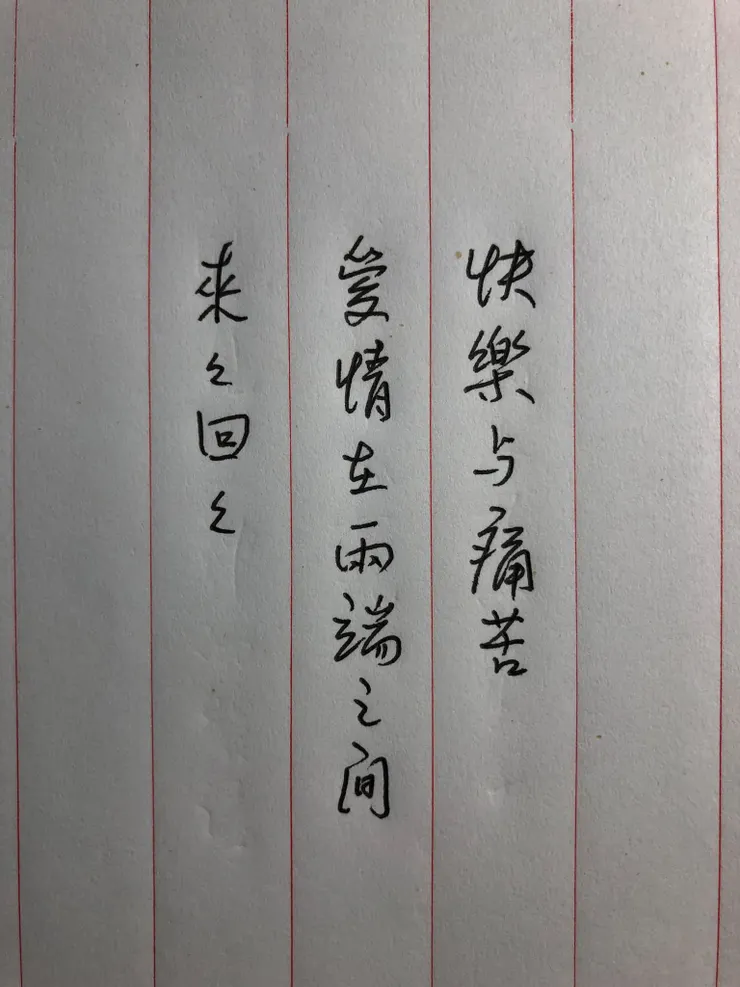 快樂与痛苦
愛情在兩端之间
来々回々